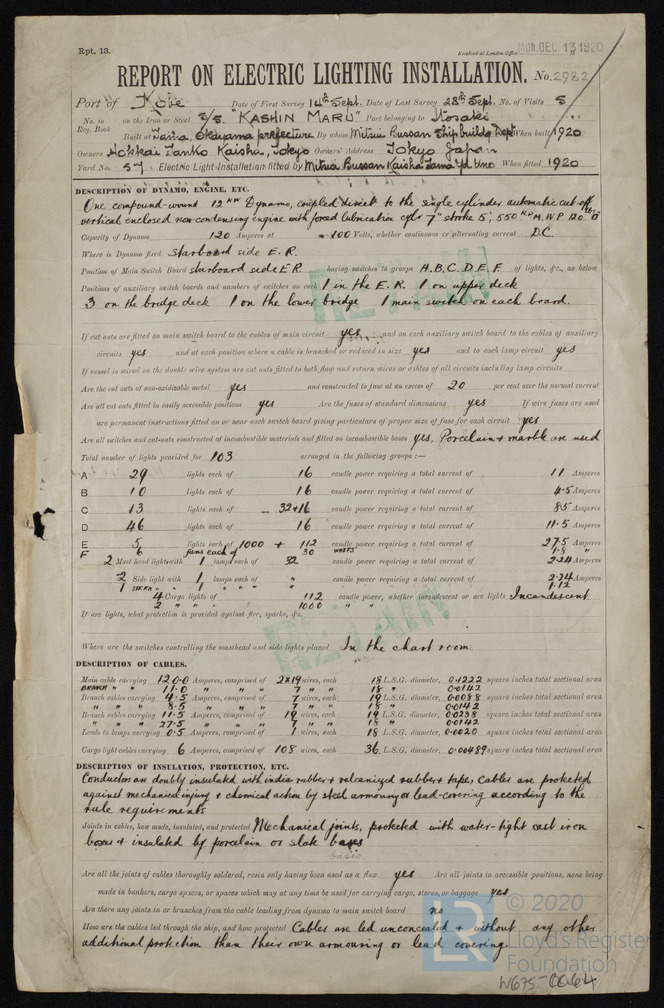 Rpt. 13.
Received at London Office MON. DEC. 13 1920
REPORT ON ELECTRIC LIGHTING INSTALLATION. No. 2982
Port of Kobe Date of First Survey 14th Sept. Date of Last Survey 28th Sept. No. of Visits 8
No. in Reg. Book on the Iron or Steel S/S. "KASHIN MARU" Port belonging to Otosaki
Built at Tama, Okayama prefecture By whom Mitsui Bussan Shipbuildg Dept When built 1920
Owners Hokkai Tanko Kaisha, Tokyo Owners' Address Tokyo Japan
Yard No. 57 Electric Light Installation fitted by Mitsui Bussan Kaisha Tama Yd Uno When fitted 1920
DESCRIPTION OF DYNAMO, ENGINE, ETC.
One compound-wound 12 KW Dynamo, coupled direct to the single cylinder automatic cut-off
vertical enclosed non-condensing engine with forced lubrication cylr 7" stroke 5", 550 R.P.M. W.P. 120 lbs
Capacity of Dynamo 120 Amperes at 100 Volts, whether continuous or alternating current D.C.
Where is Dynamo fixed starboard side E.R.
Position of Main Switch Board starboard side E R having switches to groups A.B.C.D.E.F. of lights, &c., as below
Positions of auxiliary switch boards and numbers of switches on each 1 in the E.R. 1 on upper deck
3 on the bridge deck 1 on the lower bridge 1 main switch on each board.
RETAIN
If cut outs are fitted on main switch board to the cables of main circuit yes and on each auxiliary switch board to the cables of auxiliary
circuits yes and at each position where a cable is branched or reduced in size yes and to each lamp circuit yes
If vessel is wired on the double wire system are cut outs fitted to both flow and return wires or cables of all circuits including lamp circuits
Are the cut outs of non-oxidizable metal yes and constructed to fuse at an excess of 20 per cent over the normal current
Are all cut outs fitted in easily accessible positions yes Are the fuses of standard dimensions yes If wire fuses are used
are permanent instructions fitted on or near each switch board giving particulars of proper size of fuse for each circuit yes
Are all switches and cut-outs constructed of incombustible materials and fitted on incombustible bases yes, Porcelain & marble are used
Total number of lights provided for 103 arranged in the following groups :—
A 29 lights each of 16 candle power requiring a total current of 11 Amperes
B 10 lights each of 16 candle power requiring a total current of 4.5 Amperes
C 13 lights each of 32 & 16 candle power requiring a total current of 8.5 Amperes
D 46 lights each of 16 candle power requiring a total current of 11.5 Amperes
E 5 lights each of 1000 + 112 candle power requiring a total current of 27.5 Amperes
F 6 fans each of 30 WATTS 1.8 "
2 Mast head lights with 1 lamps each of 32 candle power requiring a total current of 2.24 Amperes
2 Side light with 1 lamps each of " candle power requiring a total current of 2.24 Amperes
1 STERN " 1 " " 1.12
4 Cargo lights of 112 candle power, whether incandescent or arc lights Incandescent
2 " " " 1000 " "
If arc lights, what protection is provided against fire, sparks, &c.
RETAIN
Where are the switches controlling the masthead and side lights placed In the chart room.
DESCRIPTION OF CABLES.
Main cable carrying 120.0 Amperes, comprised of 2x19 wires, each 15 L.S.G. diameter, 0.1222 square inches total sectional area
BRANCH " " 11.0 " " " 7 " " 18 " 0.0142
Branch cables carrying 4.5 Amperes, comprised of 7 wires, each 19 L.S.G. diameter, 0.0088 square inches total sectional area
" " " 8.5 " " " 7 " " 18 " 0.0142
Branch cables carrying 11.5 Amperes, comprised of 19 wires, each 19 L.S.G. diameter, 0.0238 square inches total sectional area
" " " 27.5 " " " 7 " " 18 " 0.0142
Leads to lamps carrying 0.5 Amperes, comprised of 1 wires, each 18 L.S.G. diameter, 0.0020 square inches total sectional area
Cargo light cables carrying 6 Amperes, comprised of 108 wires, each 36 L.S.G. diameter, 0.00489 square inches total sectional area
DESCRIPTION OF INSULATION, PROTECTION, ETC.
Conductors are doubly insulated with india rubber & vulcanized rubber & tape, Cables are protected
against mechanical injury & chemical action by steel armouring or lead-covering according to the
rule requirements
Joints in cables, how made, insulated, and protected Mechanical joints, protected with water-tight cast iron
boxes & insulated by porcelain or slate bases
basis.
Are all the joints of cables thoroughly soldered, resin only having been used as a flux yes Are all joints in accessible positions, none being
made in bunkers, cargo spaces, or spaces which may at any time be used for carrying cargo, stores, or baggage yes
Are there any joints in or branches from the cable leading from dynamo to main switch board no
How are the cables led through the ship, and how protected Cables are led unconcealed & without any other
additional protection than their own armouring or lead covering.
© 2020
Lloyd's Register
Foundation
LR
W675-0064